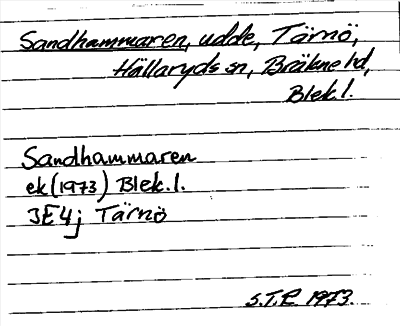 Sandhammaren, udde, Tärnö,
Hällaryds sn, Bräkne hd,
Blek. l.
Sandhammaren
ek (1973) Blek. l.
3E4j Tärnö
S.T.P. 1973.